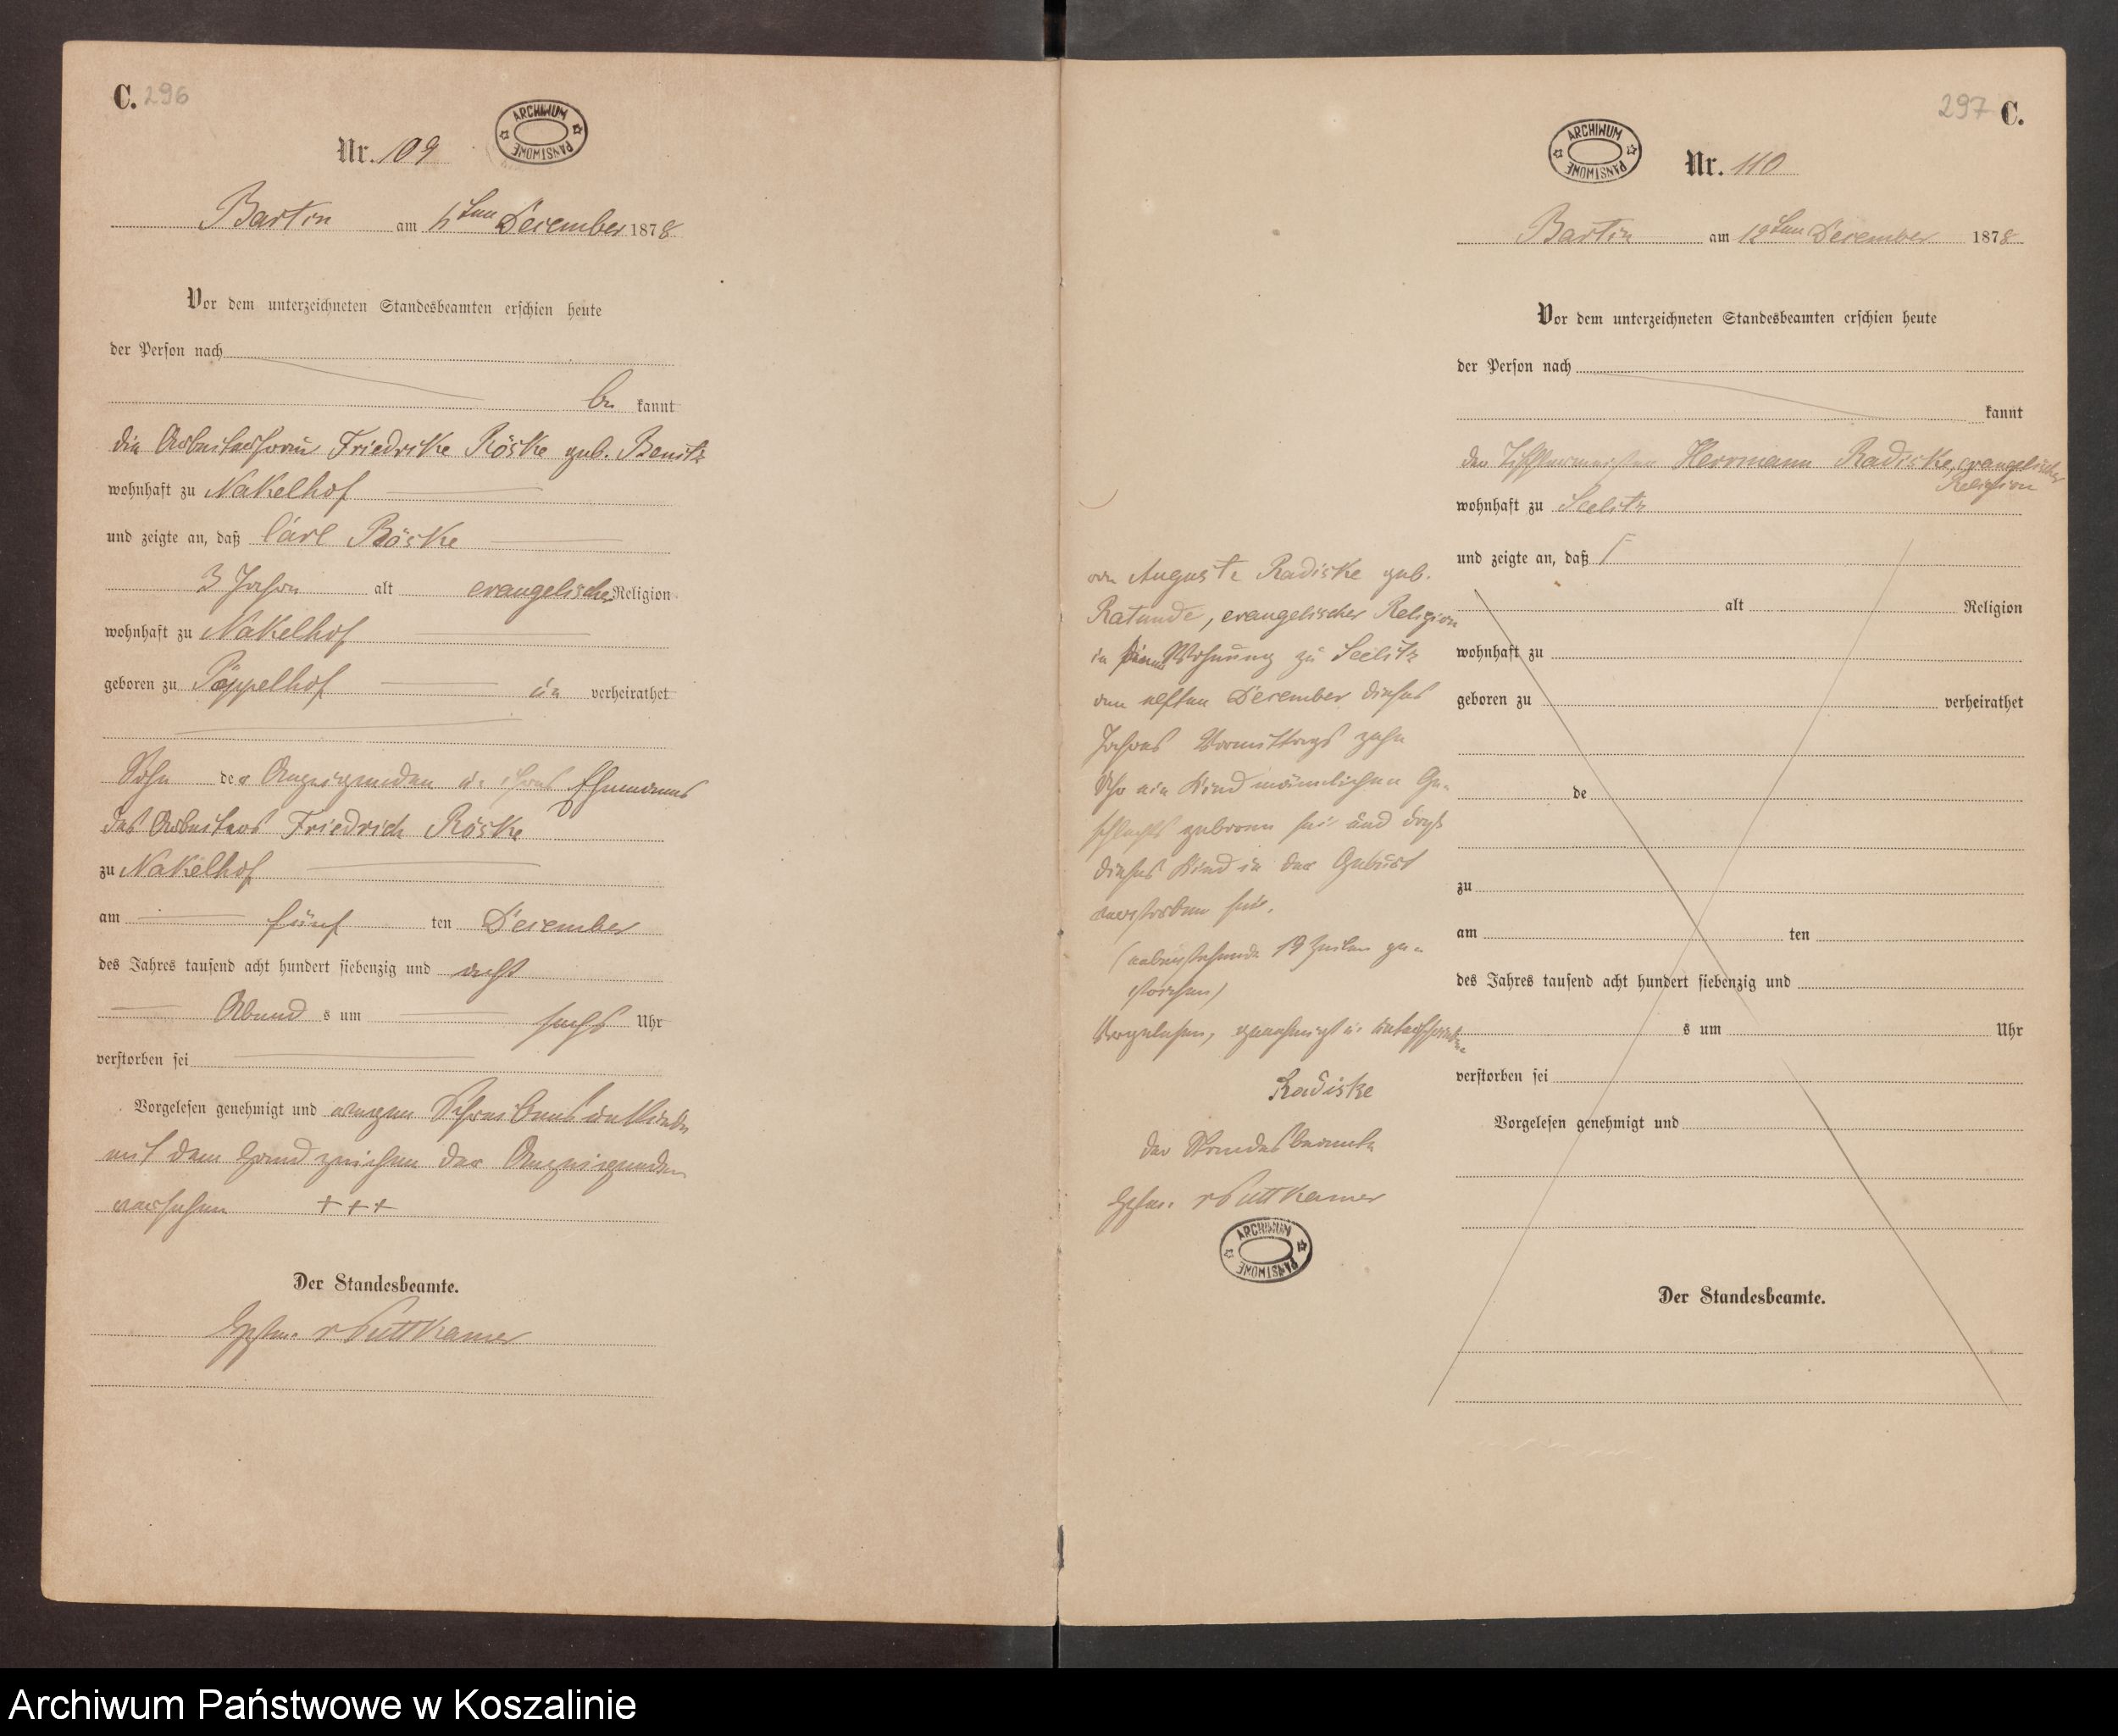 C. 296
Nr. 109
ARCHIWUM PAŃSTWOWE
Bartin am 6ten December 1878
Vor dem unterzeichneten Standesbeamten erschien heute
der Person nach
be kannt
die Arbeiterfrau Friedrike Röske geb. Benitz
wohnhaft zu Nakelhof
und zeigte an, daß Carl Röske
3 Jahre alt evangelischer Religion
wohnhaft zu Nakelhof
geboren zu Pöppelhof un verheirathet
Sohn der Anzeigenden u. ihres Ehemannes
des Arbeiters Friedrich Röske
zu Nakelhof
am fünf ten December
des Jahres tausend acht hundert siebenzig und acht
Abend s um sechs Uhr
verstorben sei
Vorgelesen genehmigt und wegen Schreibensunkunde
mit dem Handzeichen der Anzeigenden
versehen +++
Der Standesbeamte.
v Puttkamer
297 C.
ARCHIWUM PAŃSTWOWE
Nr. 110
Bartin am 12ten December 1878
Vor dem unterzeichneten Standesbeamten erschien heute
der Person nach
kannt
der Tischlermeister Herrmann Radiske, evangelischer
Religion
wohnhaft zu Seelitz
und zeigte an, daß
alt Religion
wohnhaft zu
geboren zu verheirathet
de
zu
am ten
des Jahres tausend acht hundert siebenzig und
s um Uhr
verstorben sei
Vorgelesen genehmigt und
Der Standesbeamte.
von Auguste Radiske geb.
Ratunde, evangelischer Religion
in seiner Wohnung zu Seelitz
am elften December dieses
Jahres Vormittags zehn
Uhr ein Kind männlichen Ge-
schlechts geboren sei und daß
dieses Kind in der Geburt
verstorben sei.
(nebenstehende 19 Zeilen ge-
strichen)
Vorgelesen, genehmigt u. unterschrieben
Radiske
der Standesbeamte
v Puttkamer
ARCHIWUM PAŃSTWOWE
Archiwum Państwowe w Koszalinie